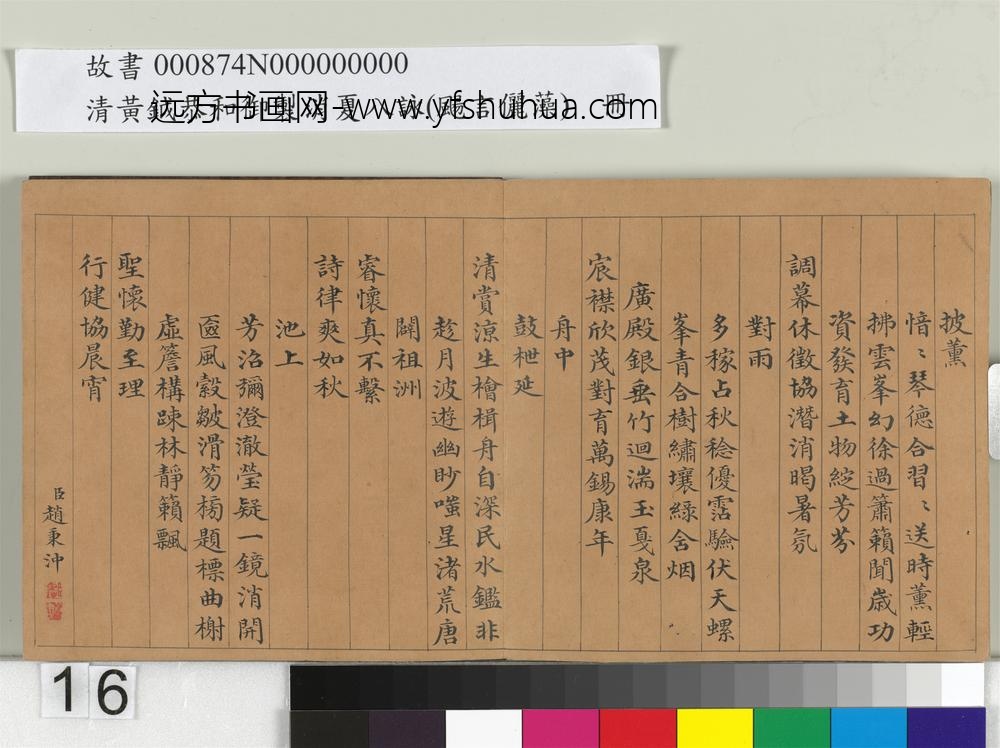 故書 000874N000000000
清黃
远方书画网-www.yfshuhua.com
披薰
愔〻琴德合習〻送時薰輕
拂雲峯幻徐過簫籟聞歲功
資發育土物綻芳芬
調幕休徵協潛消暍暑氛
對雨
多稼占秋稔優霑驗伏天螺
峯青合樹繡壤綠含烟
廣殿銀垂竹迴湍玉戛泉
宸襟欣茂對育萬錫康年
舟中
鼓枻延
清賞涼生檜楫舟自深民水鑑非
趁月波遊幽眇嗤星渚荒唐
闢祖洲
睿懷真不繫
詩律爽如秋
池上
芳沼彌澄澈瑩疑一鏡消開
奩風縠皺滑笏榜題標曲榭
虛簷構疎林靜籟飄
聖懷勤至理
行健協晨宵
臣趙秉沖
16